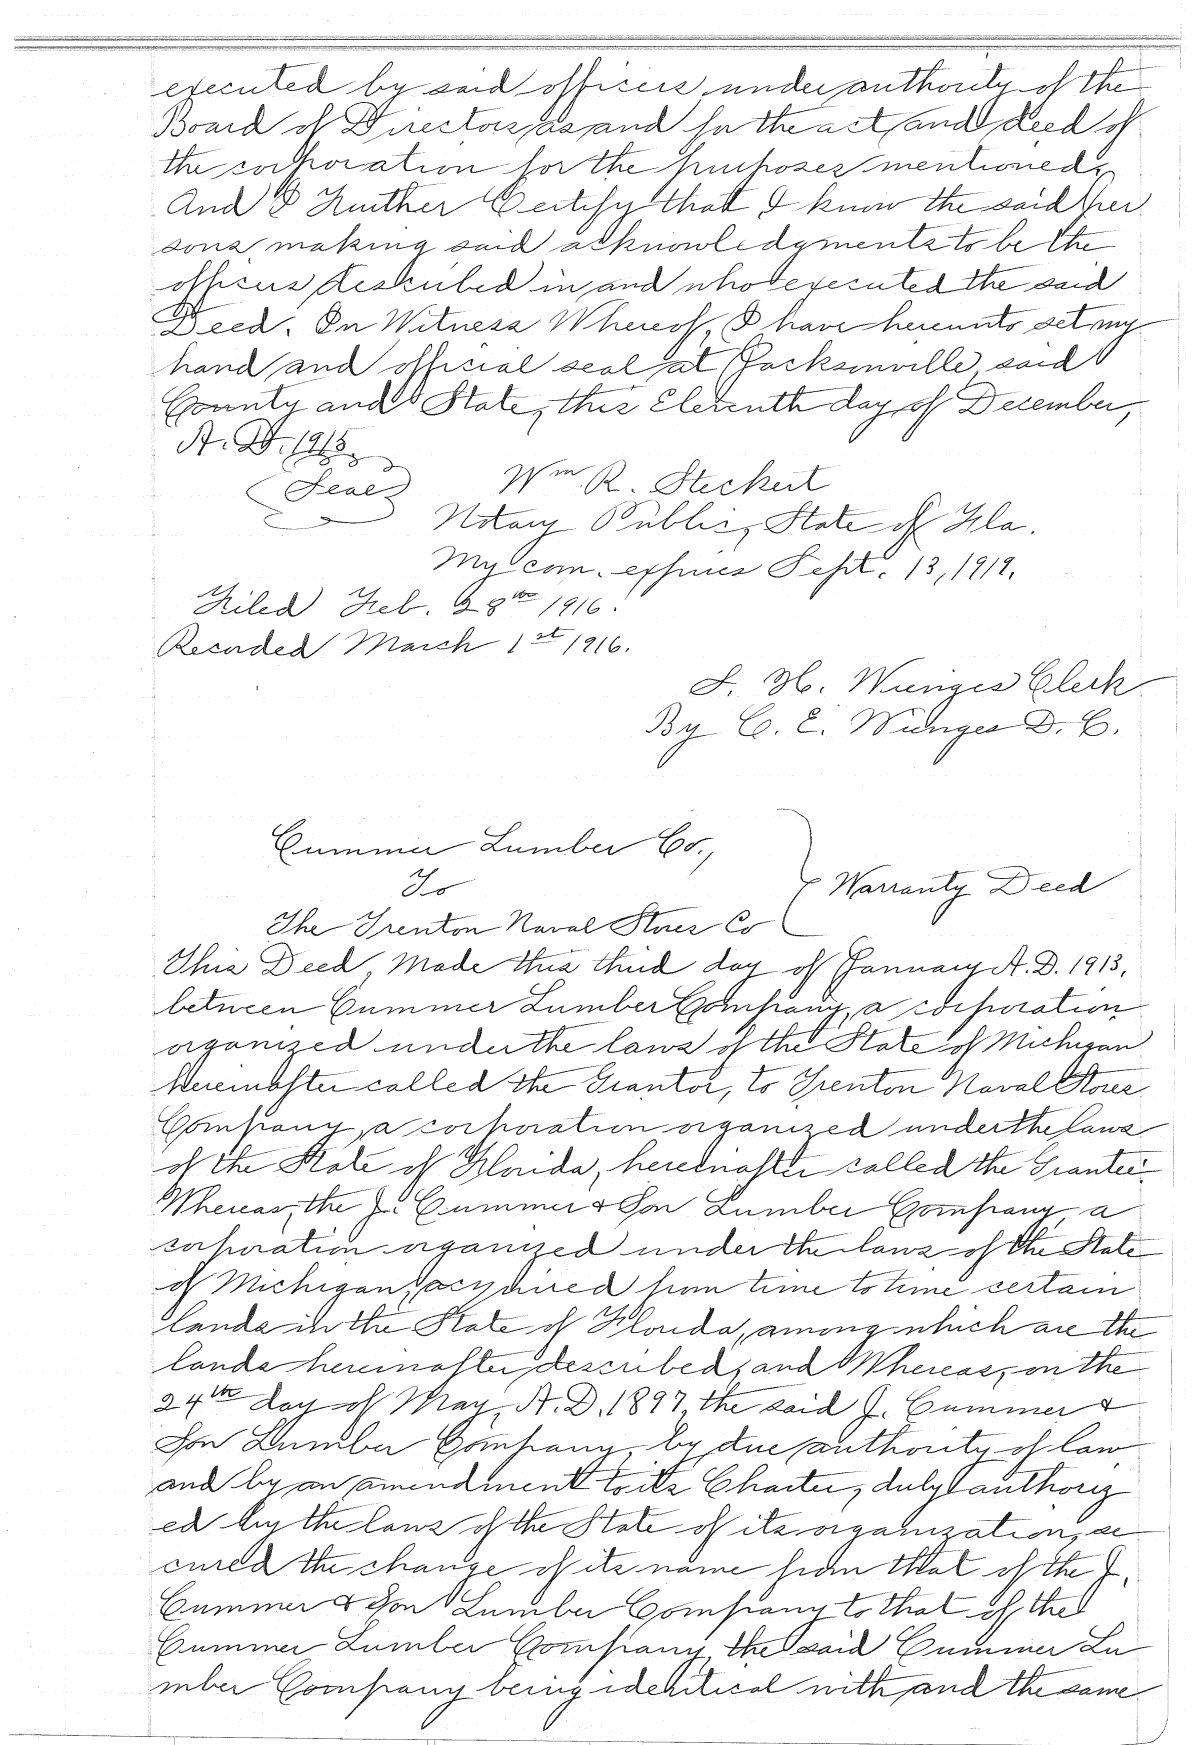 executed by said officers under authority of the
Board of Directors, as and for the act and deed of
the corporation for the purposes mentioned.
And I Further Certify that I know the said per
sons making said acknowledgments to be the
officers described in and who executed the said
Deed. In Witness Whereof, I have hereunto set my
hand and official seal at Jacksonville, said
County and State, this Eleventh day of December,
A. D. 1915.
Seal Wm R. Steckert
Notary Public, State of Fla.
My com. expires Sept. 13, 1919.
Filed Feb. 28th 1916.
Recorded March 1st 1916.
S. H. Wienges Clerk
By C. E. Wienges D. C.
Cummer Lumber Co.,
To
Warranty Deed
The Trenton Naval Stores Co
This Deed, Made this third day of January A. D. 1913,
between Cummer Lumber Company, a corporation
organized under the laws of the State of Michigan
hereinafter called the Grantor, to Trenton Naval Stores
Company, a corporation organized under the laws
of the State of Florida, hereinafter called the Grantee.
Whereas, the J. Cummer & Son Lumber Company, a
corporation organized under the laws of the State
of Michigan, acquired from time to time certain
lands in the State of Florida, among which are the
lands hereinafter described, and Whereas, on the
24th day of May, A. D. 1897, the said J. Cummer &
Son Lumber Company, by due authority of law
and by an amendment to its Charter, duly authoriz
ed by the laws of the State of its organization, se
cured the change of its name from that of the J.
Cummer & Son Lumber Company to that of the
Cummer Lumber Company, the said Cummer Lu
mber Company being identical with and the same